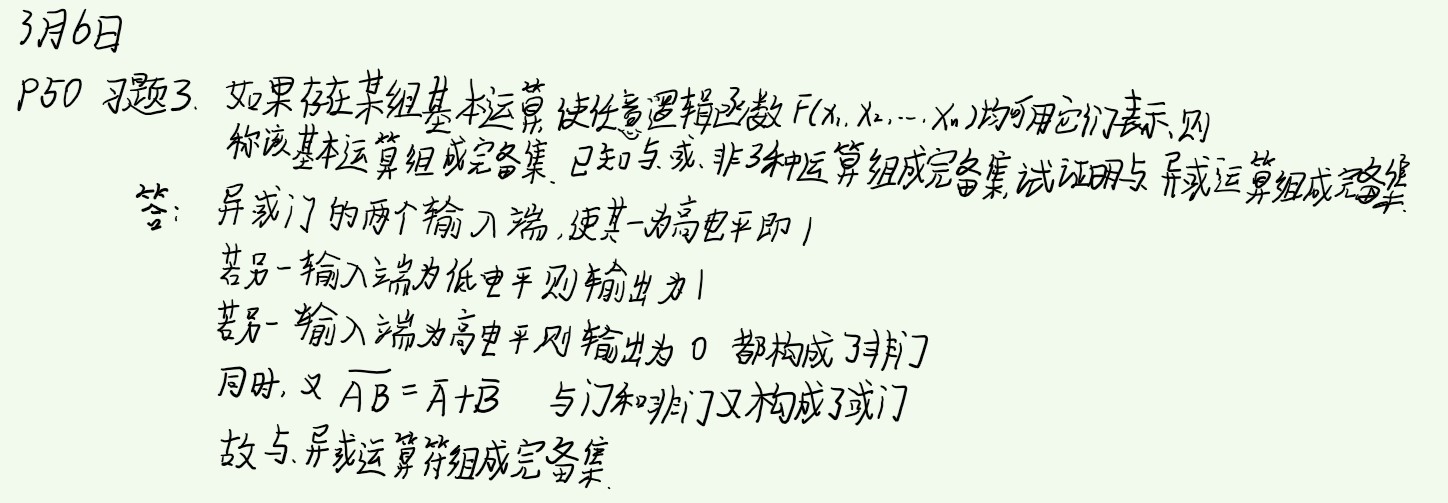 3月6日
P50 习题3. 如果存在某组基本运算,使任意逻辑函数F(x₁,x₂,…,xₙ)均可用它们表示,则
称该基本运算组成完备集.已知与、或、非3种运算组成完备集,试证明与、异或运算组成完备集.
答: 异或门的两个输入端,使其一为高电平即1
若另一输入端为低电平则输出为1
若另一输入端为高电平则输出为0 都构成了非门
同时,又 \overline{AB} = \overline{A}+\overline{B} 与门和非门又构成了或门
故与、异或运算符组成完备集.